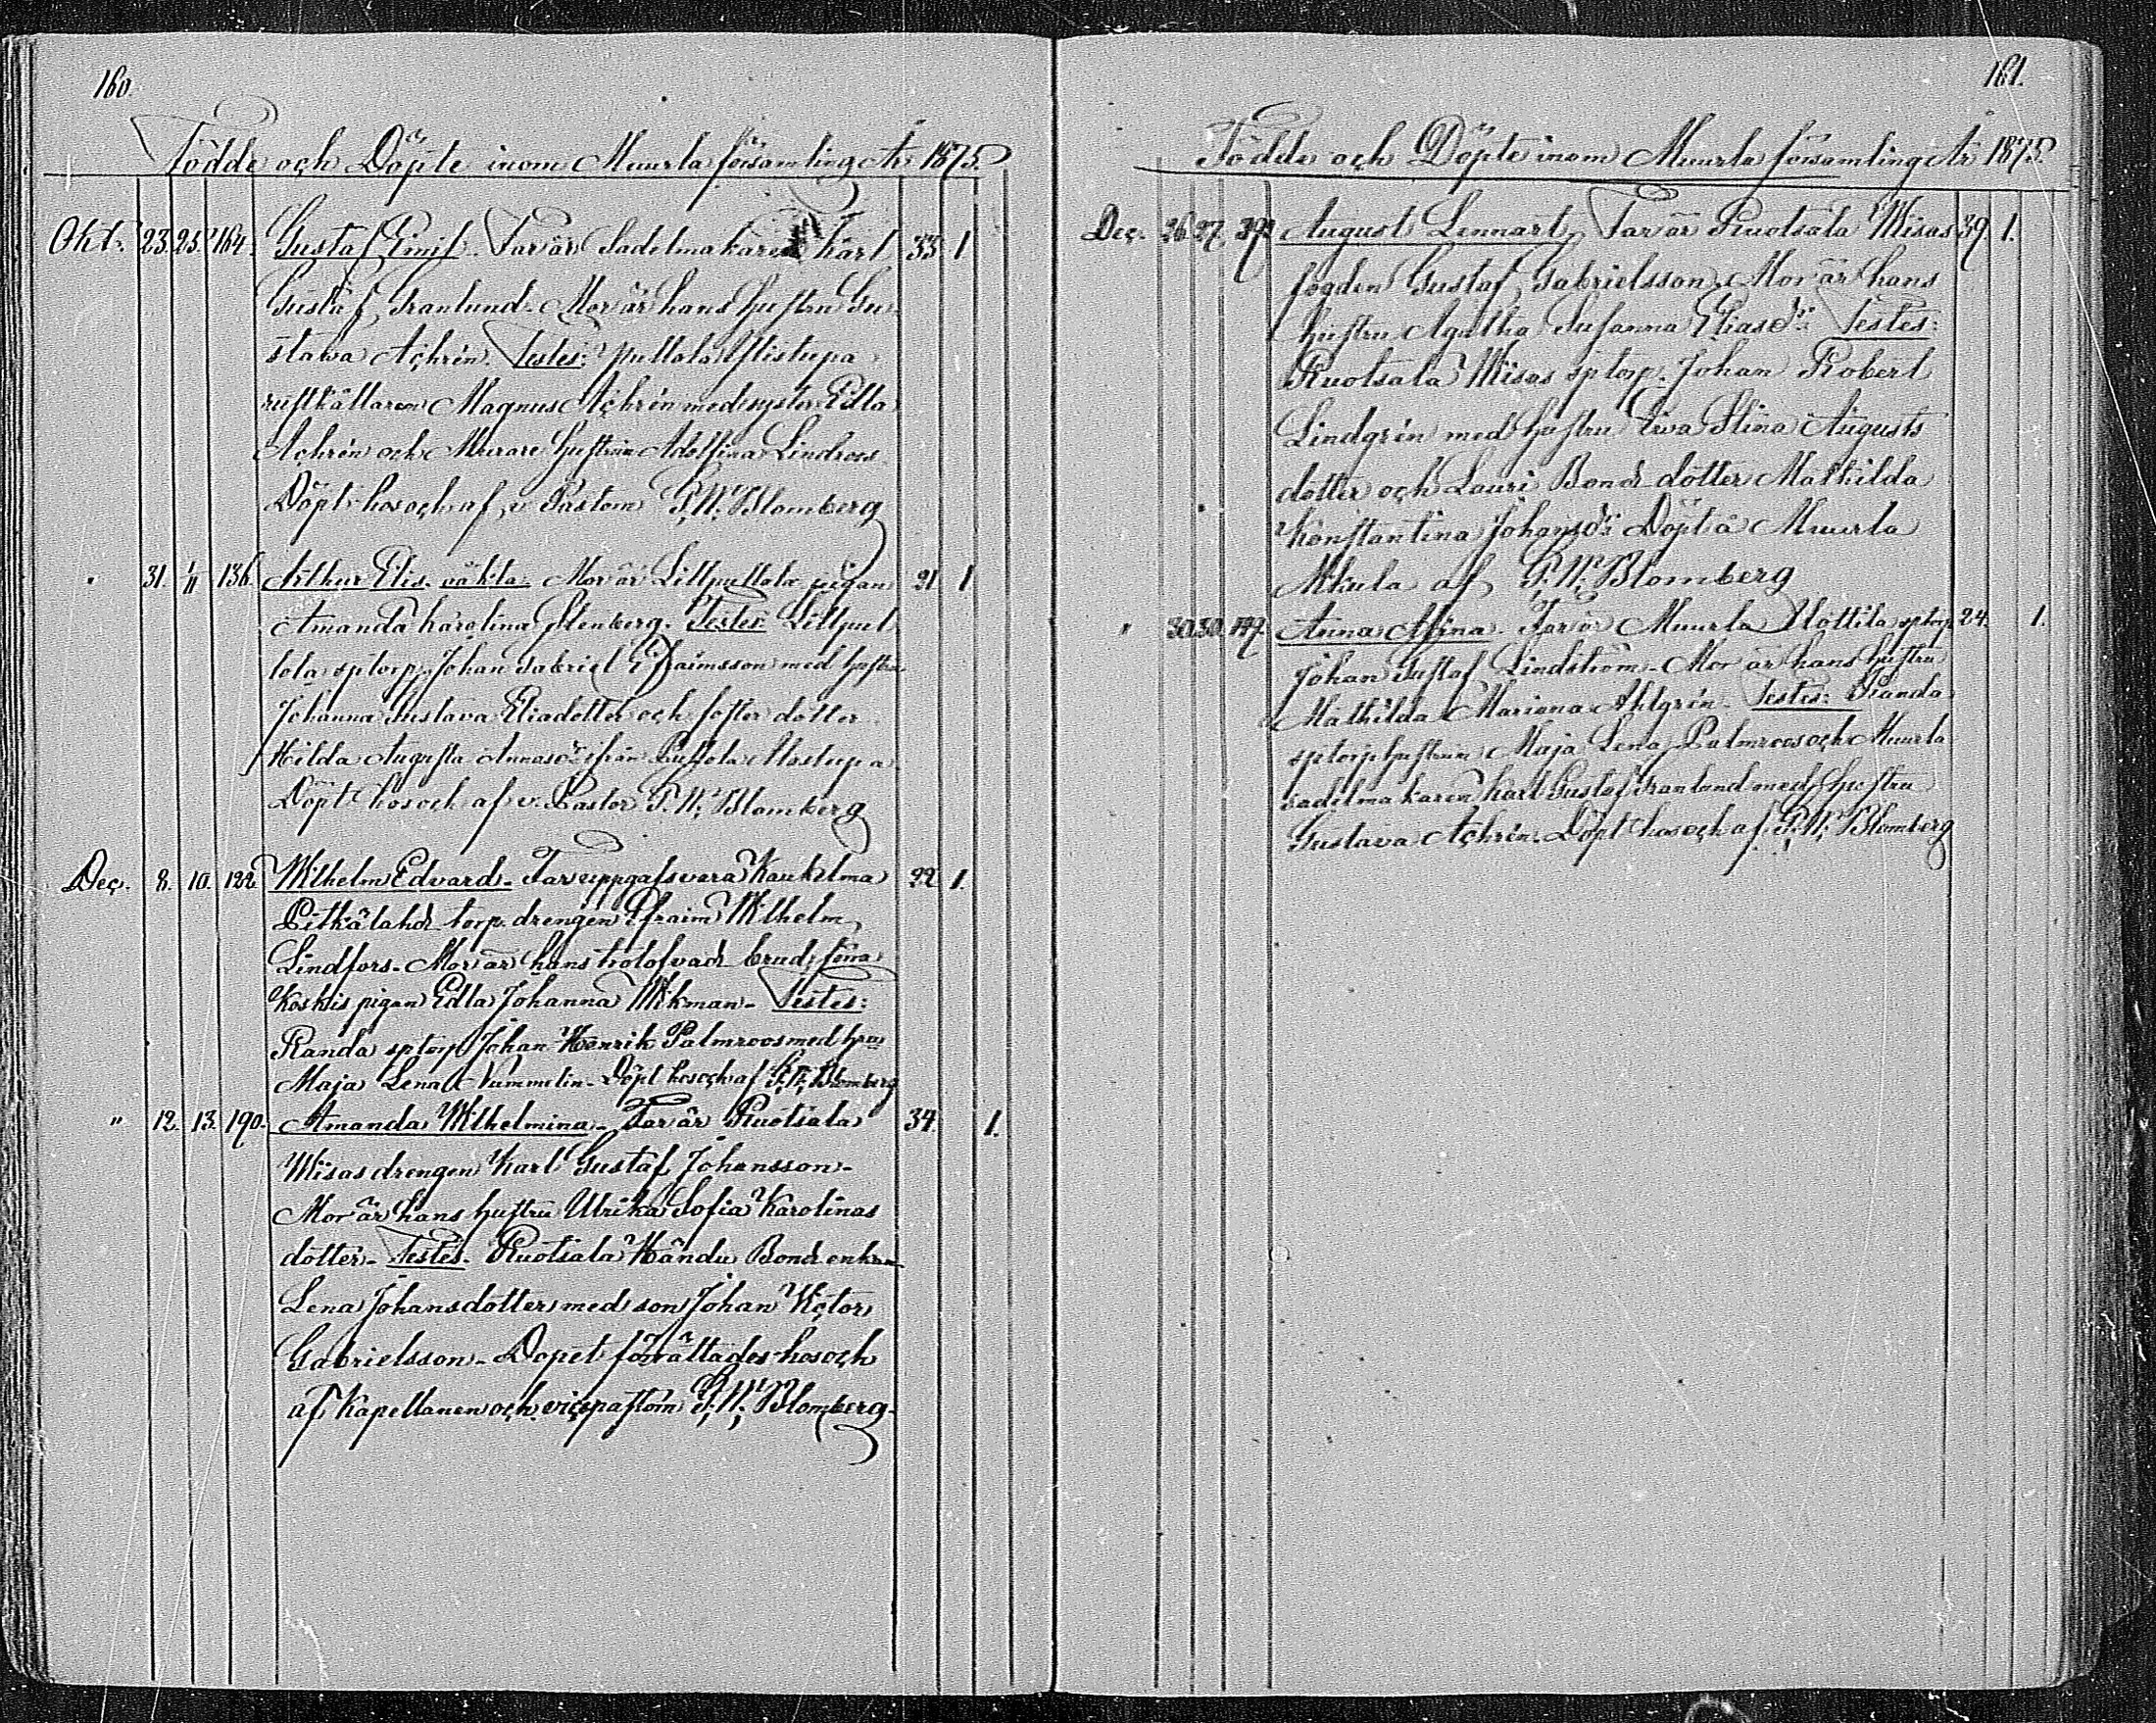 160.
Födde och Döpte inom Muurla församling År 1875.
Okt. 23. 25. 164. Gustaf Emil. Far är Sadelmakaren Karl 33. 1
Gustaf Granlund. Mor är hans hustru Gu-
stava Achrén. Testes: Pullola
rusthållaren Magnus Achrén med syster Edla
Achrén och Murare hustrun Adolfina Lindroos
Döpt hos och af v. Pastorn F. W. Blomberg
" 31. 1/11 136. Arthur Elis. oäkta. Mor är Lillpullola pigan 21. 1
Amanda Karolina Stenberg. Testes: Lillpul-
lola sptorp. Johan Gabriel Efraimsson med hustru
Johanna Gustava Eliadotter och foster dotter
Hilda Augusta från Pullola
Döpt hos och af v. Pastor F. W. Blomberg
Dec. 8. 10. 122. Wilhelm Edvard. Far uppgafs vara Kaukelma 22. 1.
Pitkälahd torp. drengen Efraim Wilhelm
Lindfors. Mor är hans trolofvad brud,
Koskis pigan Edla Johanna Wikman. Testes:
Randa sptorp. Johan Henrik Palmroos med hru
Maja Lena Nummelin. Döpt hos och af F. W. Blomberg
" 12. 13. 190. Amanda Wilhelmina. Far är Ruotsala 34. 1.
Wisas drengen Karl Gustaf Johansson.
Mor är hans hustru Ulrika Sofia Karolinas
dotter. Testes. Ruotsala Händu Bond enkan
Lena Johansdotter med son Johan Victor
Gabrielsson. Dopet förrättades hos och
af Kapellanen och vicepastorn F. W. Blomberg.
161.
Födde och Döpte inom Muurla församling År 1875.
Dec. 26. 27. August Lennart. Far är Ruotsala Wisas 39. 1.
fogden Gustaf Gabrielsson. Mor är hans
hustru Agatha Susanna Eliasdr. Testes:
Ruotsala Wisas sptorp. Johan Robert
Lindgrén med hustru Ewa Stina Augusts
dotter och Lauri Bond dotter Mathilda
Konstantina Johansdr. Döpt å Muurla
Nikula af F. W. Blomberg
" 30. 30. 147. Anna Alfina. Far är Muurla Uottila sptorp. 24. 1.
Johan Gustaf Lindström. Mor är hans hustru
Mathilda Mariana Ahlgrén. Testes: Randa
sptorp hustrun Maja Lena Palmroos och Muurla
sadelmakaren Karl Gustaf Granlund med hustru
Gustava Achrén. Döpt hos och af F. W. Blomberg